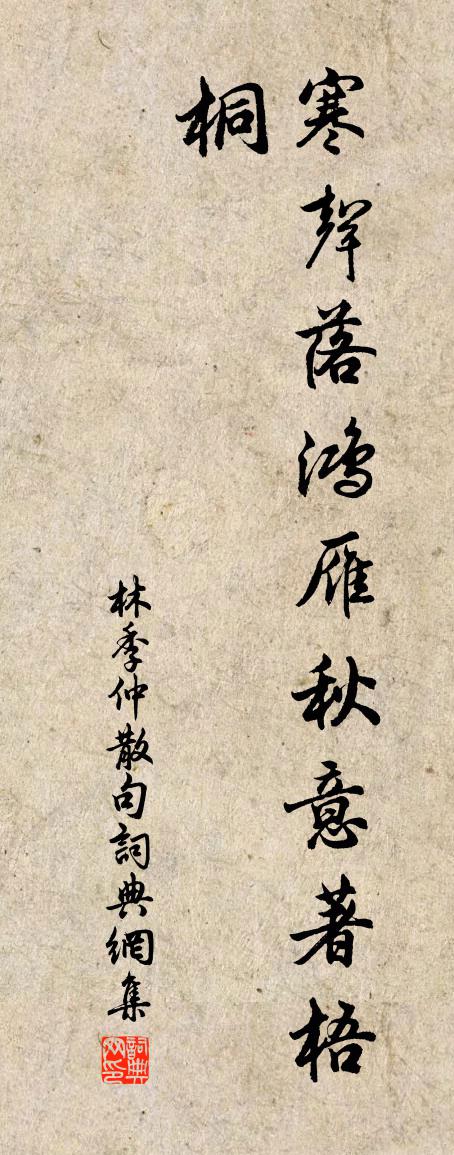 寒聲落鴻雁秋意著梧
桐
林季仲散句詞典網集
詞典
网印